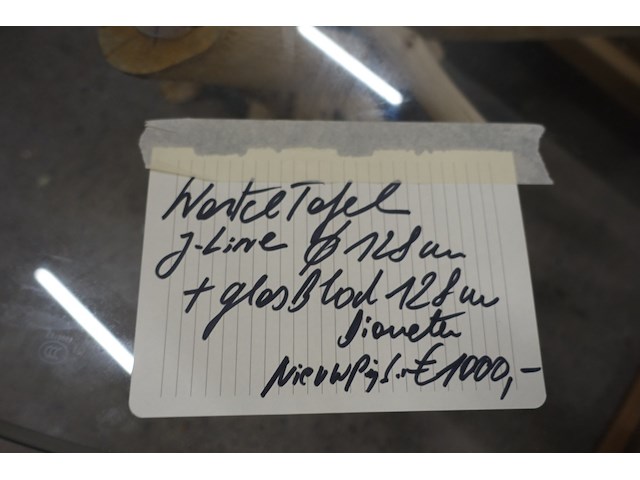 WortelTafel
J-Line Ø 128 cm
+ glasBlad 128 cm
Diameter
Nieuwprijs € 1000,-